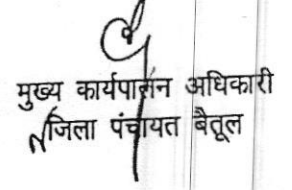 मुख्य कार्यपालन अधिकारी
जिला पंचायत बैतूल